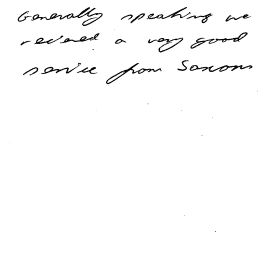 Generally speaking we
recieved a very good
service from Saxons